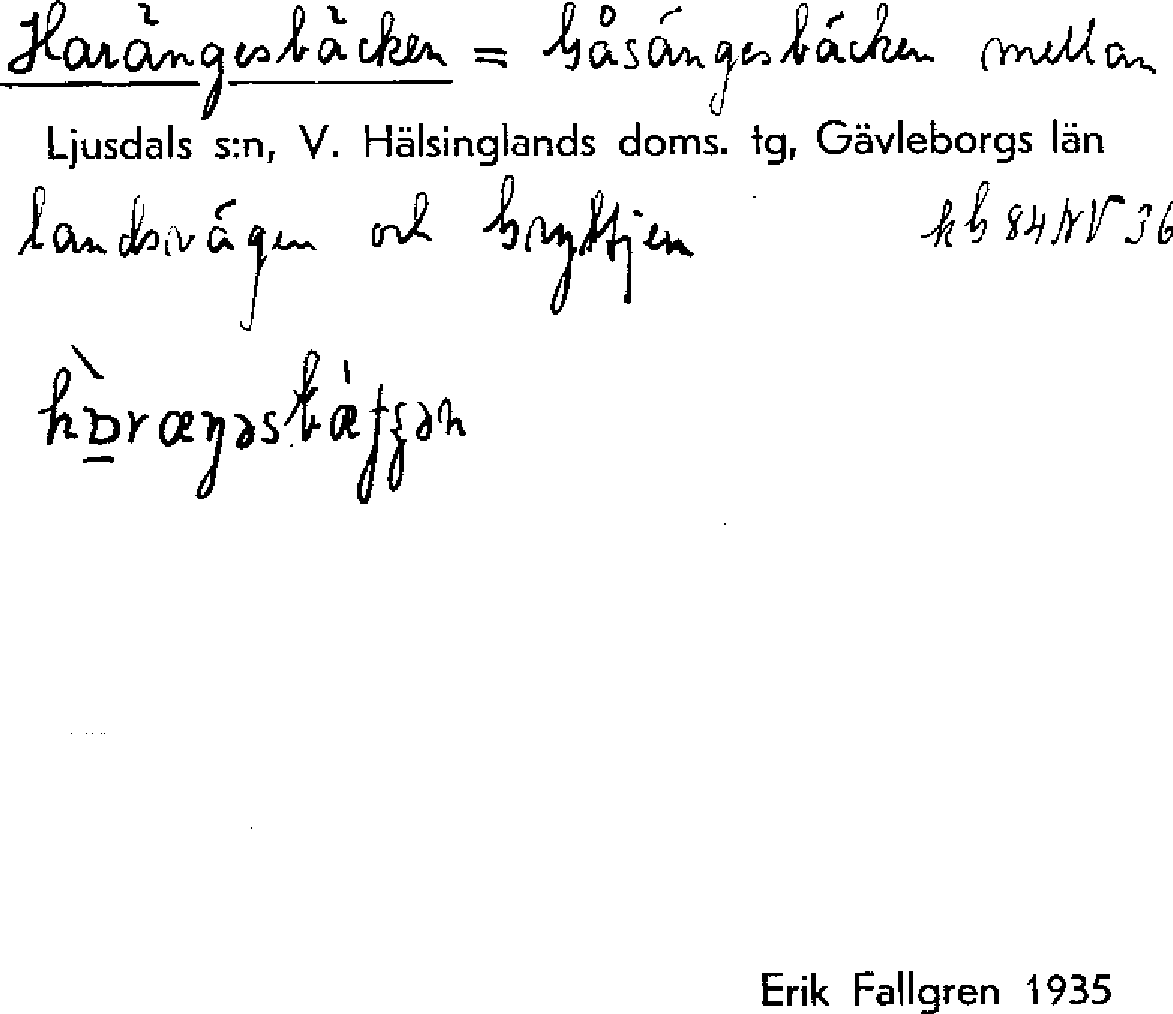 Harängesbäcken = Båsängesbäcken mellan
Ljusdals s:n, V. Hälsinglands doms. tg, Gävleborgs län
landsvägen och Bryttjen kb 84 NV 36
Erik Fallgren 1935